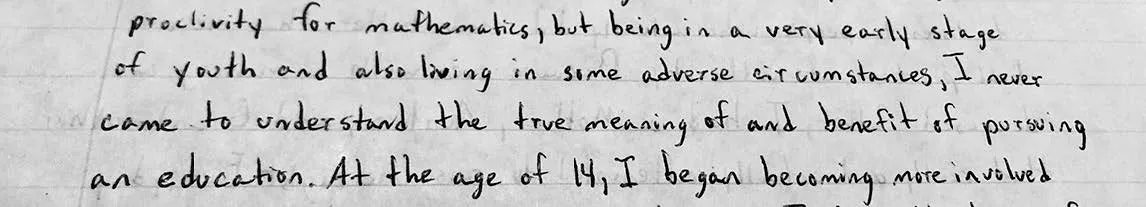 proclivity for mathematics, but being in a very early stage
of youth and also living in some adverse circumstances, I never
came to understand the true meaning of and benefit of pursuing
an education. At the age of 14, I began becoming more involved